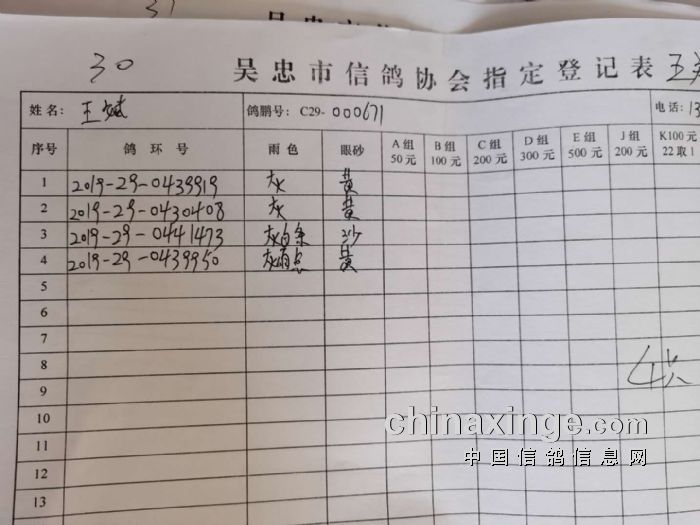 30 吴忠市信鸽协会指定登记表
姓名： 王斌 鸽鹏号： C29- 000671 电话：13
序号 鸽 环 号 雨 色 眼砂 A 组 50 元 B 组 100 元 C 组 200 元 D 组 300 元 E 组 500 元 J 组 200 元 K100 元 22 取 1
1 2019-29-0439919 灰 黄
2 2019-29-0430408 灰 黄
3 2019-29-0441473 灰白条 沙
4 2019-29-0439950 黄
5
6
7
8
9
10
11
12
13
chinaxinge.com
中国信鸽信息网